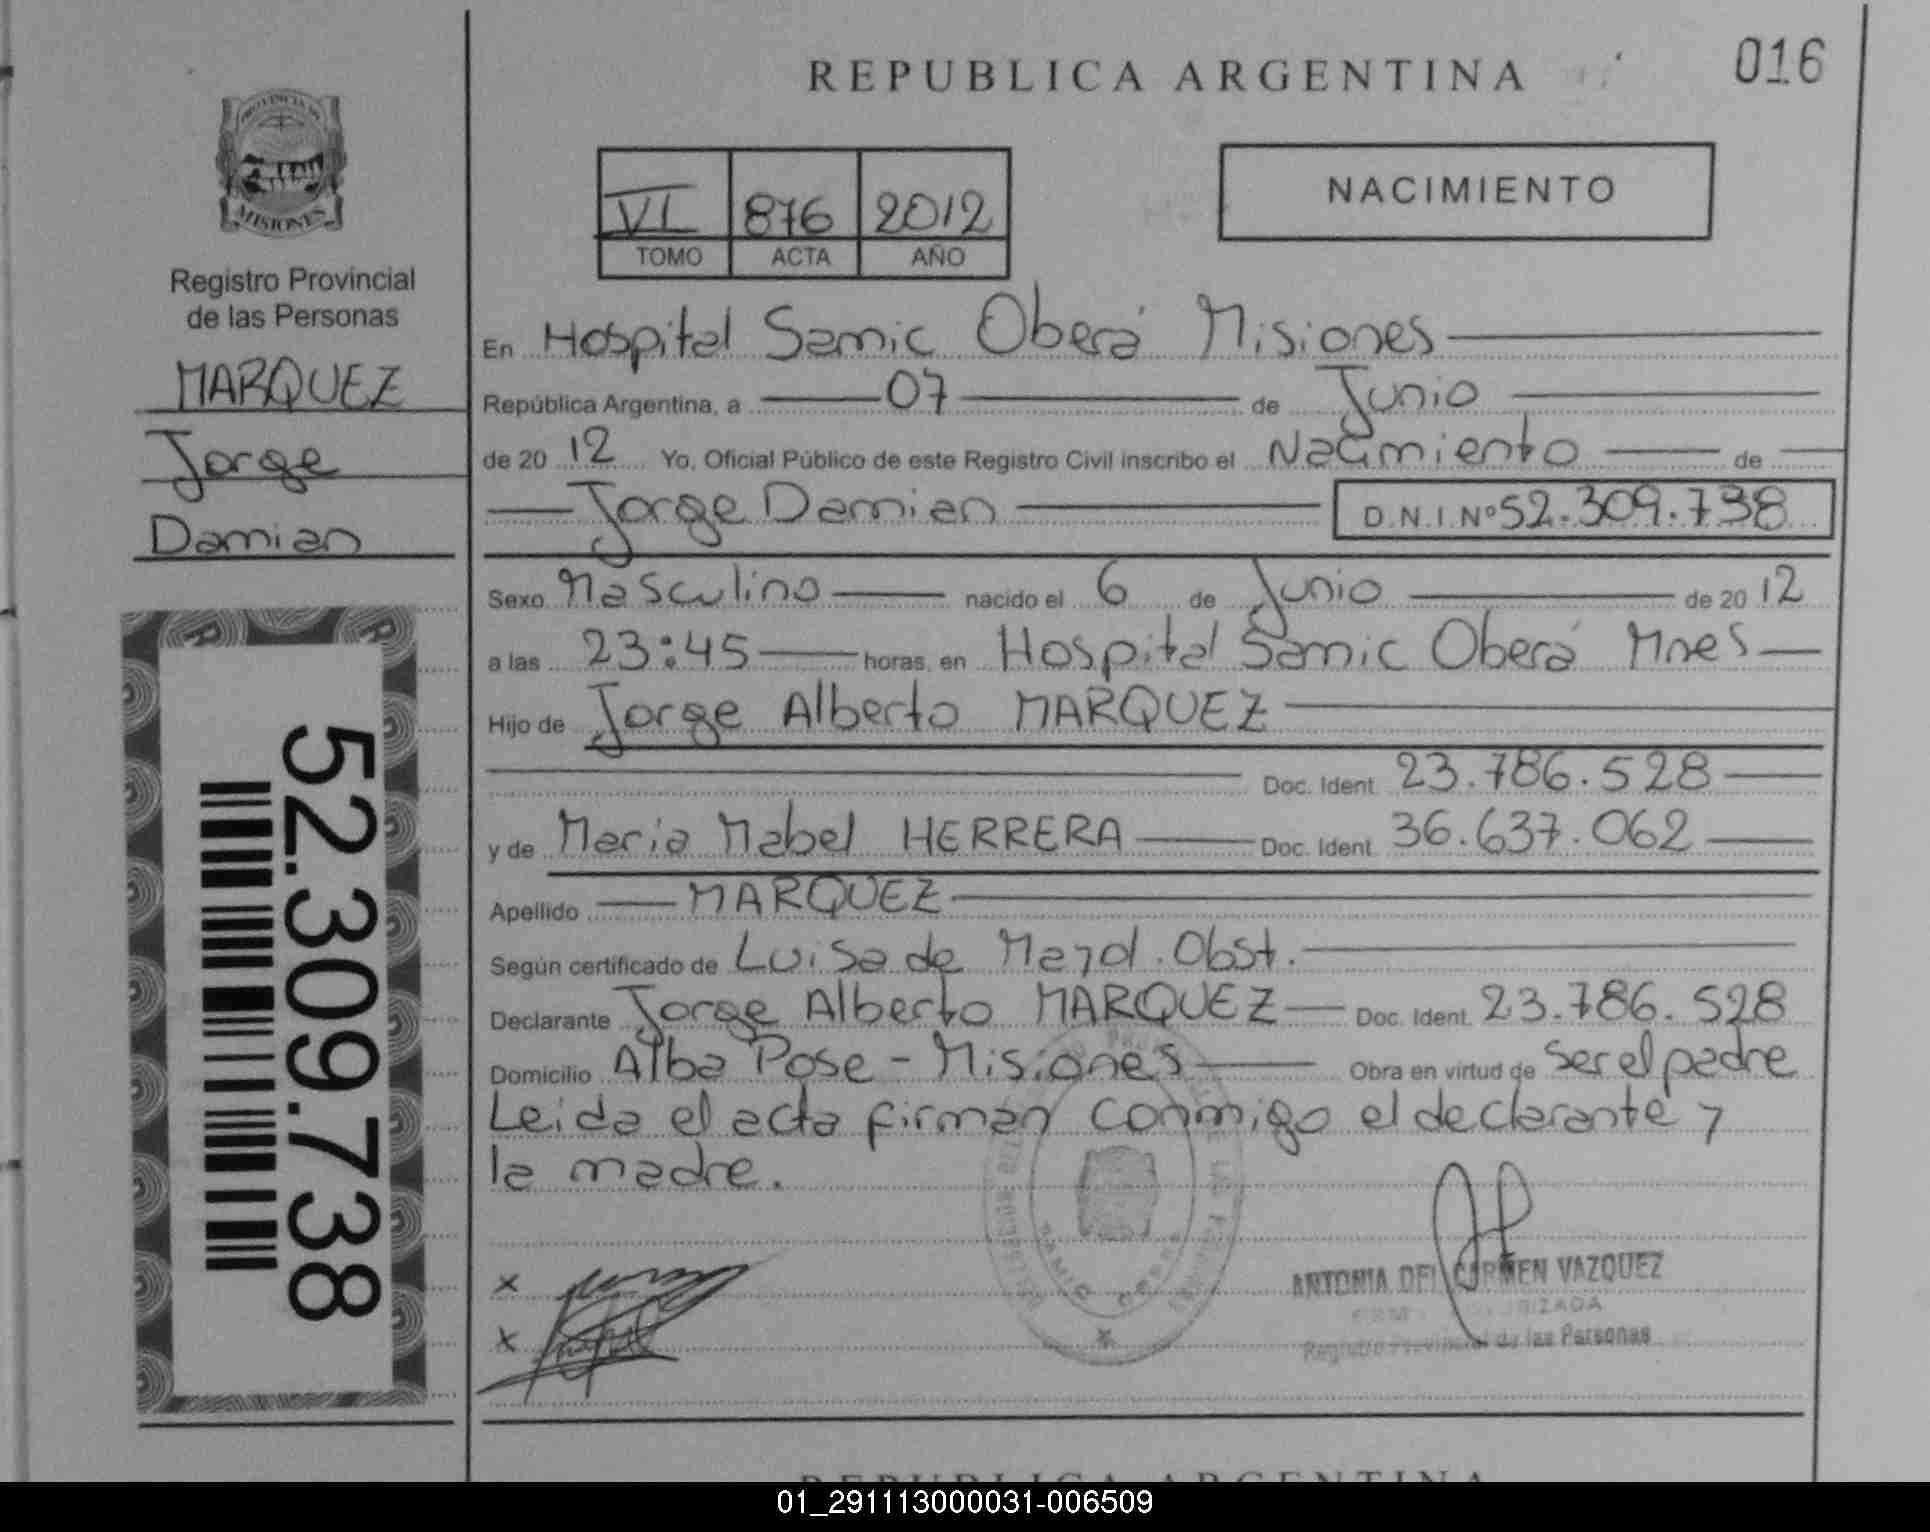 REPUBLICA ARGENTINA
016
PROVINCIA DE
MISIONES
Registro Provincial
de las Personas
MARQUEZ
Jorge
Damian
52.309.738
VI 876 2012
TOMO ACTA AÑO
NACIMIENTO
En Hospital Samic Oberá Misiones
República Argentina, a 07 de Junio
de 20 12 Yo, Oficial Público de este Registro Civil inscribo el Nacimiento de
Jorge Damian D.N.I.Nº 52.309.738
Sexo Masculino nacido el 6 de Junio de 20 12
a las 23:45 horas, en Hospital Samic Oberá Mnes
Hijo de Jorge Alberto MARQUEZ
Doc. Ident. 23.786.528
y de Maria Mabel HERRERA Doc. Ident. 36.637.062
Apellido MARQUEZ
Según certificado de Luisa de Obst.
Declarante Jorge Alberto MARQUEZ Doc. Ident. 23.786.528
Domicilio Alba Pose - Misiones Obra en virtud de ser el padre
Leida el acta firman conmigo el declarante y
la madre.
x
x
ANTONIA DEL CARMEN VAZQUEZ
Registro Provincial de las Personas
REPUBLICA ARGENTINA
01_291113000031-006509